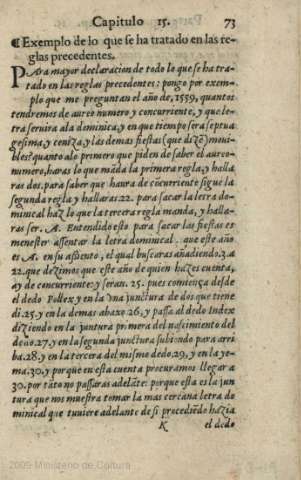 Capitulo 15. 73
¶Exemplo de lo que se ha tratado en las re-
glas precedentes.
PAra mayor declaracion de todo lo que se ha tra-
tado en las reglas precedentes: pongo por exem-
plo que me preguntan el año de, 1559, quantos
tendremos de aureo numero y concurriente, y que le-
tra seruira ala dominica, y en que tiempo sera septua
gesima, y ceniza, y las demas fiestas (que dizẽ) moui-
bles? quanto alo primero que piden de saber el aureo
numero, haras lo que mãda la primera regla, y halla
ras dos. para saber que haura de cõcurriente sigue la
segunda regla y hallaras. 22. para sacar la letra do-
minical haz lo que la tercera regla manda, y halla-
ras ser. A. Entendido esto para sacar las fiestas es
menester assentar la letra dominical. que este año
es A. en su assiento, el qual buscaras añadiendo. 3. a
22. que dezimos que este año de quien hazes cuenta,
ay de concurriente: y seran. 25. pues comença desde
el dedo Pollex y en la vna junctura de dos que tiene
di. 25. y en la demas abaxo 26, y passa al dedo Index
diziendo en la juntura primera del nascimiento del
dedo. 27. y en la segunda junctura subiendo para arri
ba. 28. y en la tercera del mismo dedo. 29, y en la ye-
ma. 30. y porque en esta cuenta procuramos llegar a
30. por tãto no passaras adelãte: porque esta es la jun
tura que nos muestra tomar la mas cercana letra do
minical que tuuiere adelante de si procediẽdo hazia
K el dedo
2009 Ministerio de Cultura